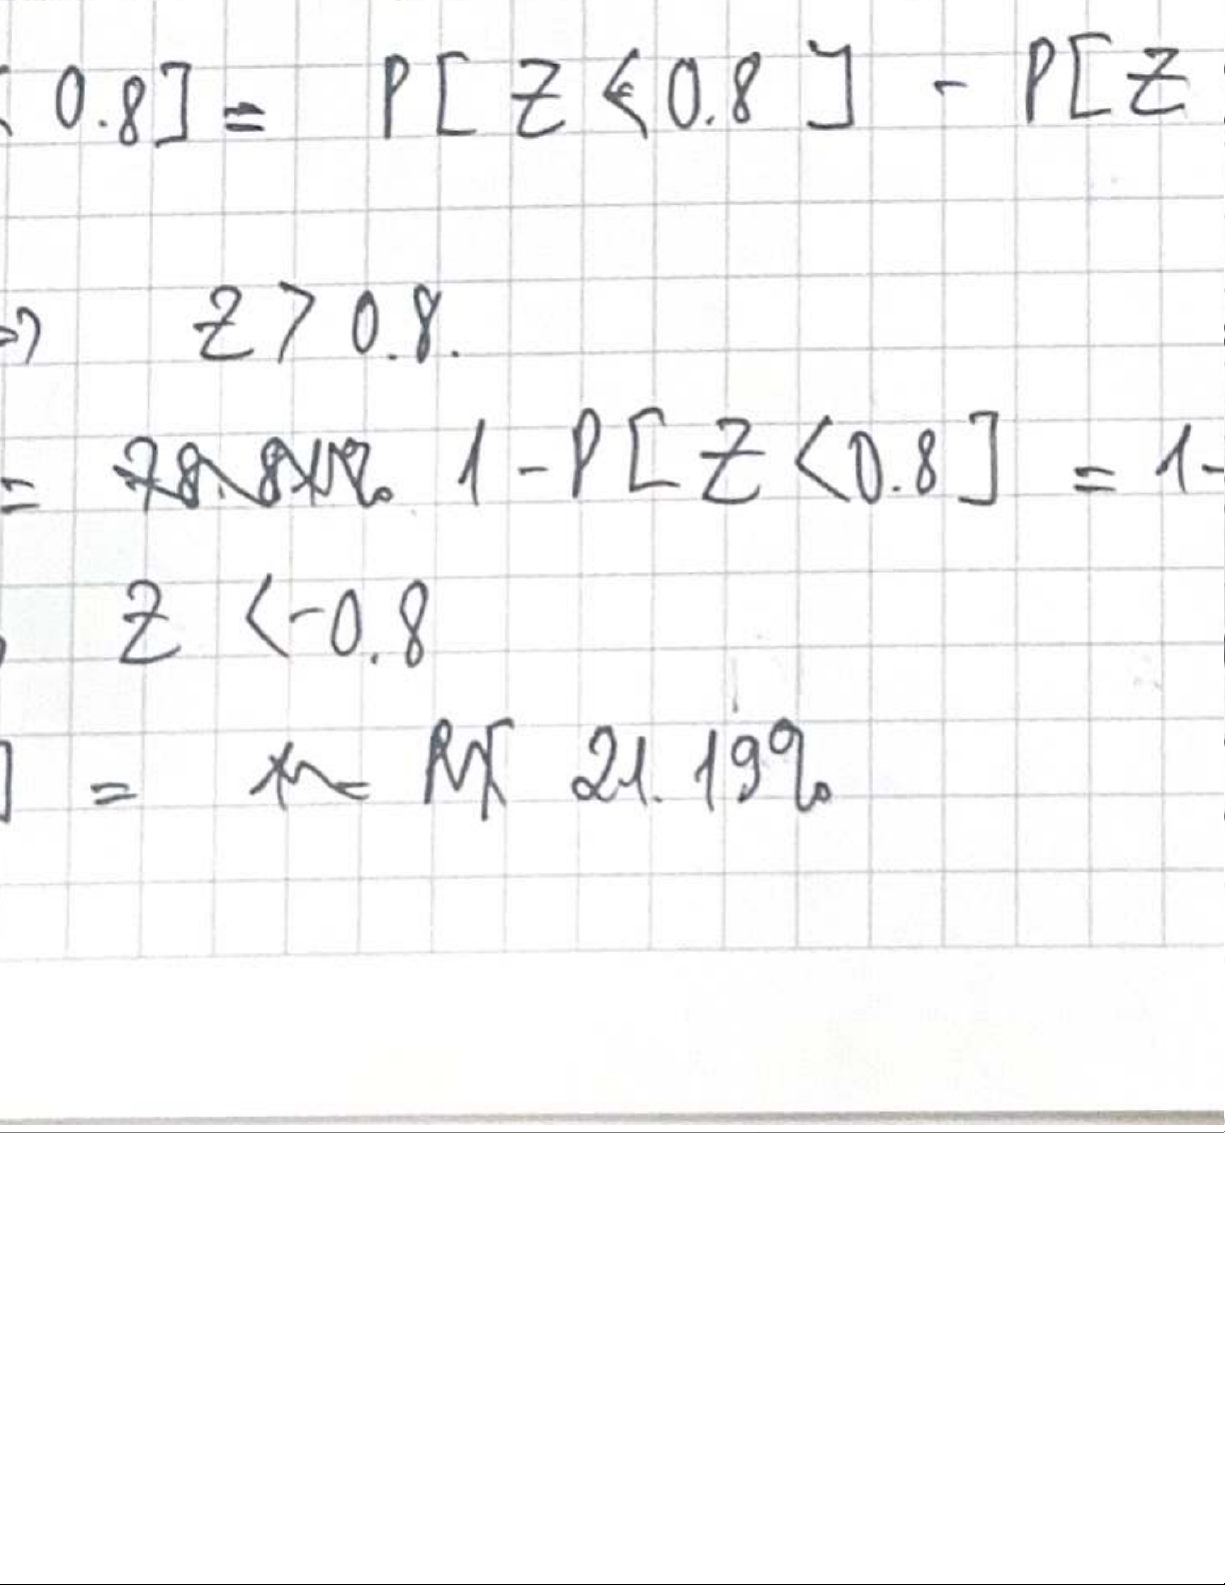 < 0.8] = P[Z < 0.8] - P[Z
=> Z > 0.8.
= 1 - P[Z < 0.8] = 1 -
Z < -0.8
] = 21.19%